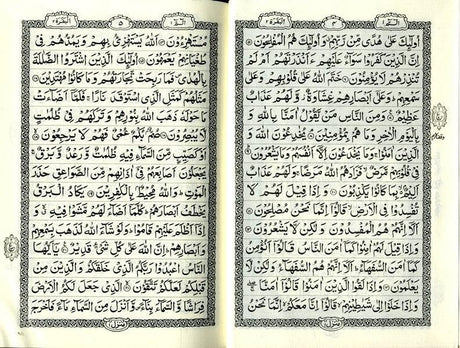 البقرة ٢
اُولٰٓئِكَ عَلٰى هُدًى مِّنْ رَّبِّهِمْ وَاُولٰٓئِكَ هُمُ الْمُفْلِحُوْنَ
اِنَّ الَّذِيْنَ كَفَرُوْا سَوَآءٌ عَلَيْهِمْ ءَاَنْذَرْتَهُمْ اَمْ لَمْ
تُنْذِرْهُمْ لَا يُؤْمِنُوْنَ خَتَمَ اللّٰهُ عَلٰى قُلُوْبِهِمْ وَعَلٰى
سَمْعِهِمْ وَعَلٰٓى اَبْصَارِهِمْ غِشَاوَةٌ وَّلَهُمْ عَذَابٌ
عَظِيْمٌ وَمِنَ النَّاسِ مَنْ يَّقُوْلُ اٰمَنَّا بِاللّٰهِ وَ
بِالْيَوْمِ الْاٰخِرِ وَمَا هُمْ بِمُؤْمِنِيْنَ يُخٰدِعُوْنَ اللّٰهَ وَ
الَّذِيْنَ اٰمَنُوْا وَمَا يَخْدَعُوْنَ اِلَّآ اَنْفُسَهُمْ وَمَا يَشْعُرُوْنَ
فِيْ قُلُوْبِهِمْ مَّرَضٌ فَزَادَهُمُ اللّٰهُ مَرَضًا وَلَهُمْ عَذَابٌ
اَلِيْمٌ بِمَا كَانُوْا يَكْذِبُوْنَ وَاِذَا قِيْلَ لَهُمْ لَا
تُفْسِدُوْا فِى الْاَرْضِ قَالُوْٓا اِنَّمَا نَحْنُ مُصْلِحُوْنَ
اَلَآ اِنَّهُمْ هُمُ الْمُفْسِدُوْنَ وَلٰكِنْ لَّا يَشْعُرُوْنَ
وَاِذَا قِيْلَ لَهُمْ اٰمِنُوْا كَمَآ اٰمَنَ النَّاسُ قَالُوْٓا اَنُؤْمِنُ
كَمَآ اٰمَنَ السُّفَهَآءُ اَلَآ اِنَّهُمْ هُمُ السُّفَهَآءُ وَلٰكِنْ لَّا
يَعْلَمُوْنَ وَاِذَا لَقُوا الَّذِيْنَ اٰمَنُوْا قَالُوْٓا اٰمَنَّا
وَاِذَا خَلَوْا اِلٰى شَيٰطِيْنِهِمْ قَالُوْٓا اِنَّا مَعَكُمْ اِنَّمَا نَحْنُ
٥
البقرة ٢
مُسْتَهْزِءُوْنَ اَللّٰهُ يَسْتَهْزِئُ بِهِمْ وَيَمُدُّهُمْ فِيْ
طُغْيَانِهِمْ يَعْمَهُوْنَ اُولٰٓئِكَ الَّذِيْنَ اشْتَرَوُا الضَّلٰلَةَ
بِالْهُدٰى فَمَا رَبِحَتْ تِّجَارَتُهُمْ وَمَا كَانُوْا مُهْتَدِيْنَ
مَثَلُهُمْ كَمَثَلِ الَّذِى اسْتَوْقَدَ نَارًا فَلَمَّآ اَضَآءَتْ
مَا حَوْلَهٗ ذَهَبَ اللّٰهُ بِنُوْرِهِمْ وَتَرَكَهُمْ فِيْ ظُلُمٰتٍ
لَّا يُبْصِرُوْنَ صُمٌّۢ بُكْمٌ عُمْيٌ فَهُمْ لَا يَرْجِعُوْنَ
اَوْ كَصَيِّبٍ مِّنَ السَّمَآءِ فِيْهِ ظُلُمٰتٌ وَّرَعْدٌ وَّبَرْقٌ
يَجْعَلُوْنَ اَصَابِعَهُمْ فِيْٓ اٰذَانِهِمْ مِّنَ الصَّوَاعِقِ حَذَرَ
الْمَوْتِ وَاللّٰهُ مُحِيْطٌۢ بِالْكٰفِرِيْنَ يَكَادُ الْبَرْقُ
يَخْطَفُ اَبْصَارَهُمْ كُلَّمَآ اَضَآءَ لَهُمْ مَّشَوْا فِيْهِ وَ
اِذَآ اَظْلَمَ عَلَيْهِمْ قَامُوْا وَلَوْ شَآءَ اللّٰهُ لَذَهَبَ بِسَمْعِهِمْ
وَاَبْصَارِهِمْ اِنَّ اللّٰهَ عَلٰى كُلِّ شَيْءٍ قَدِيْرٌ يٰٓاَيُّهَا
النَّاسُ اعْبُدُوْا رَبَّكُمُ الَّذِيْ خَلَقَكُمْ وَالَّذِيْنَ مِنْ
قَبْلِكُمْ لَعَلَّكُمْ تَتَّقُوْنَ الَّذِيْ جَعَلَ لَكُمُ الْاَرْضَ
فِرَاشًا وَّالسَّمَآءَ بِنَآءً وَّاَنْزَلَ مِنَ السَّمَآءِ مَآءً فَاَخْرَجَ